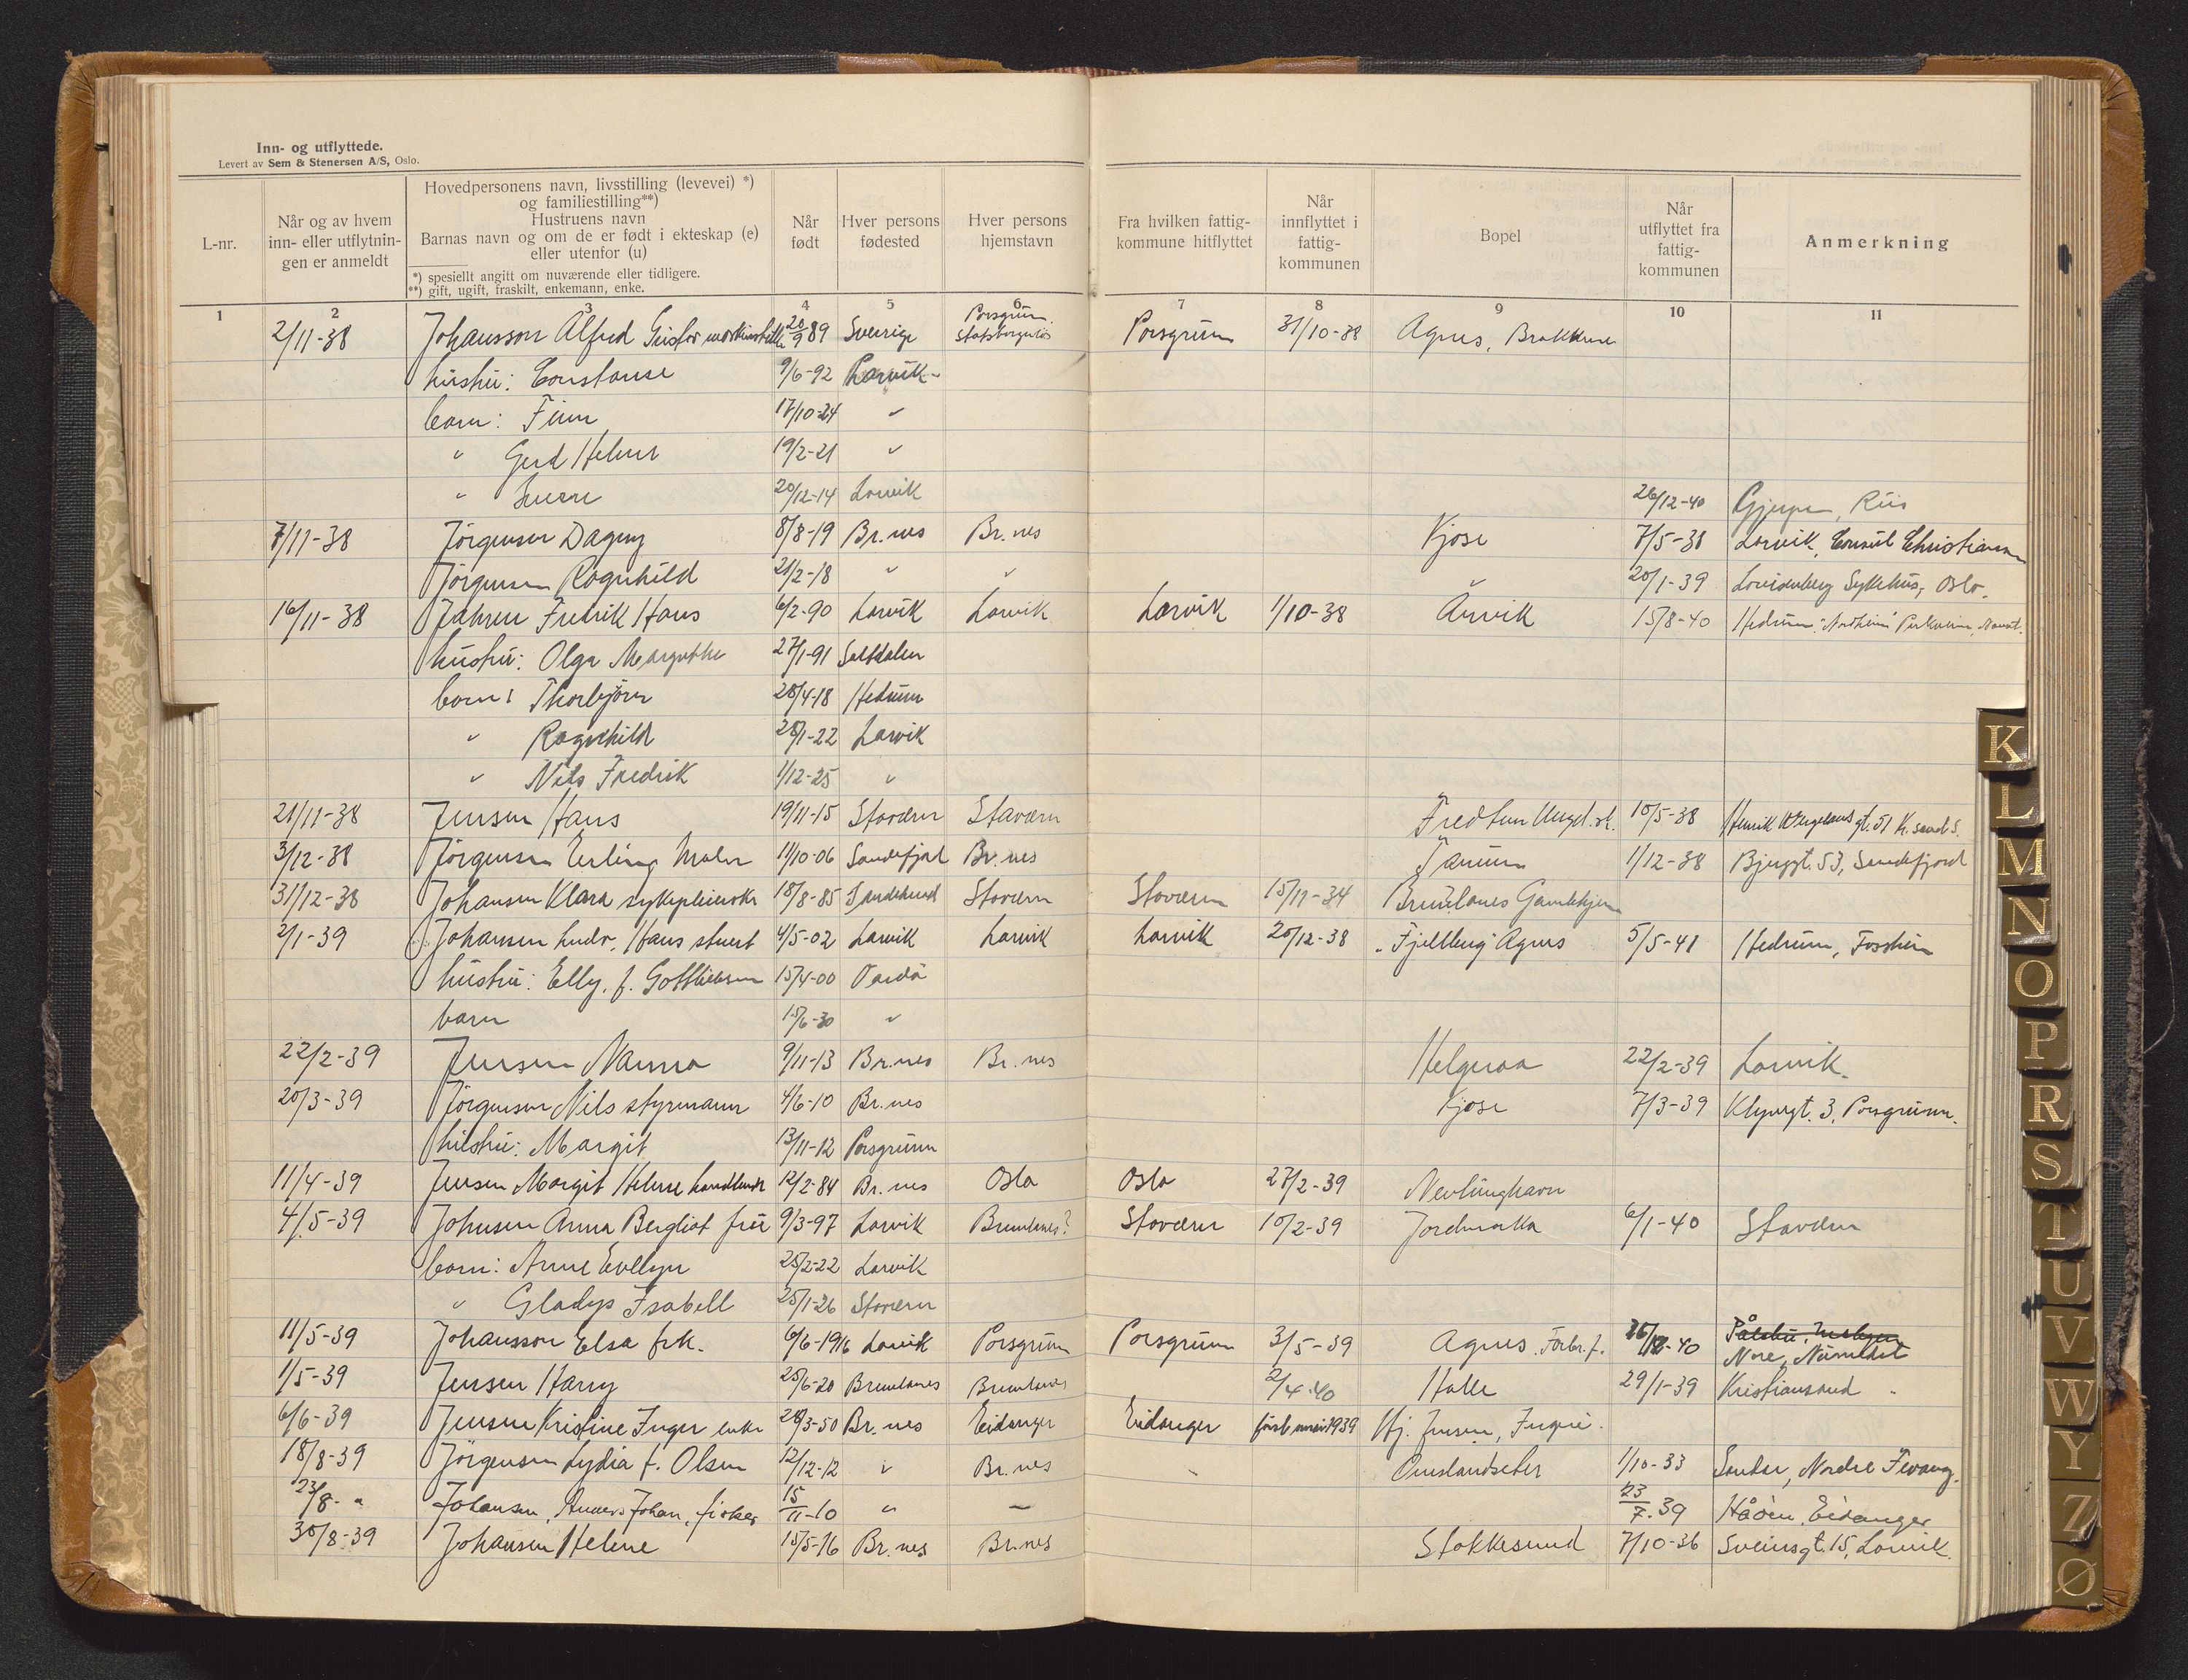 Inn- og utflyttede.
Levert av Sem & Stenersen A/S, Oslo.
L-nr.
Når og av hvem inn- eller utflytnin-gen er anmeldt
Hovedpersonens navn, livsstilling (levevei) *) og familiestilling**)
Hustruens navn
Barnas navn og om de er født i ekteskap (e) eller utenfor (u)
*) spesiellt angitt om nuværende eller tidligere.
**) gift, ugift, fraskilt, enkemann, enke.
Når født
Hver persons fødested
Hver persons hjemstavn
Fra hvilken fattig-kommune hitflyttet
Når innflyttet i fattig-kommunen
Bopel
Når utflyttet fra fattig-kommunen
Anmerkning
1 2 3 4 5 6 7 8 9 10 11
2/11-38 Johansson Alfred Gustav 20/9 89 Sverige Porsgrunn Porsgrunn 31/10-38 Agnes, Brekkene
hustru: Constanse 9/6-92 Larvik
barn: Finn 17/10-24 "
" Gerd Helene 19/2-21 "
" 20/12-14 Larvik 26/12-40 Gjerpen, Riis
7/11-38 Jörgensen Dagny 8/8-19 Br.nes Br.nes Kjose 7/5-38 Larvik, Consul Christiansen
Jörgensen Ragnhild 21/2-18 " " " 20/1-39 Lovisenberg Sykehus, Oslo.
16/11-38 Jahren Fredrik Hans 6/2-90 Larvik Larvik Larvik 1/10-38 Anvik 15/8-40 Hedrum
hustru: Olga Margrethe 27/1-91 Saltdalen
barn: Thorbjörn 28/4-18 Hedrum
" Ragnhild 28/1-22 Larvik
" Nils Fredrik 1/12-25 "
21/11-38 Jensen Hans 19/11-15 Stavern Stavern Fredtun 10/5-38 Henrik Wergelands gt. 51 K.sand S.
3/12-38 Jörgensen Erling Maler 11/10-06 Sandefjord Br.nes Tanum 1/12-38 Bjergt. 53, Sandefjord
31/12-38 Johansen Klara sykepleierske 18/8-85 Stavern Stavern 15/11-34 Brunlanes Gamlehjem
2/1-39 Johansen Ludv. Hans stuert 4/5-02 Larvik Larvik Larvik 20/12-38 "Fjellberg" Agnes 5/5-41 Hedrum,
hustru: Elly, f. Gottliebsen 15/4-00 Vardö
barn 15/6-30 "
22/2-39 Jensen Nanna 9/11-13 Br.nes Br.nes Helgeroa 22/2-39 Larvik.
20/3-39 Jörgensen Nils styrmann 4/6-10 Br.nes Kjose 7/3-39 3, Porsgrunn.
hustru: Margit 13/11-12 Porsgrunn
11/4-39 Jensen Margit Helene 12/2-84 Br.nes Oslo Oslo 27/2-39 Nevlunghavn
4/5-39 Johnsen Anna Bergliot frü 9/3-97 Larvik Brunlanes? Stavern 10/2-39 Jordmarka 6/1-40 Stavern
barn: Anne Evelyn 25/2-22 Larvik
" Gladys Isabell 25/1-26 Stavern
11/5-39 Johansson Elsa frk. 6/6-1916 Larvik Porsgrunn Porsgrunn 3/5-39 Agnes Nore, Numedal
1/5-39 Jensen Harry 25/6-20 Brunlanes Brunlanes 2/4-40 Halle 29/1-39 Kristiansand
6/6-39 Jensen Kristine Inger enke 28/3-50 Br.nes Eidanger Eidanger först mai 1939 Hj. Jensen,
18/8-39 Jörgensen Lydia f. Olsen 12/12-12 " Br.nes Omslandseter 1/10-33 Sandar, Nordre Fevang.
23/8- " Johansen, Anders Johan, fisker 15/11-10 " — 23/7-39 Håöen, Eidanger
30/8-39 Johansen Helene 15/5-16 Br.nes Br.nes Stokkesund 7/10-36 Sveinsgt. 15, Larvik.
K
L
M
N
O
P
R
S
T
U
V
W
Y
Z
Ø